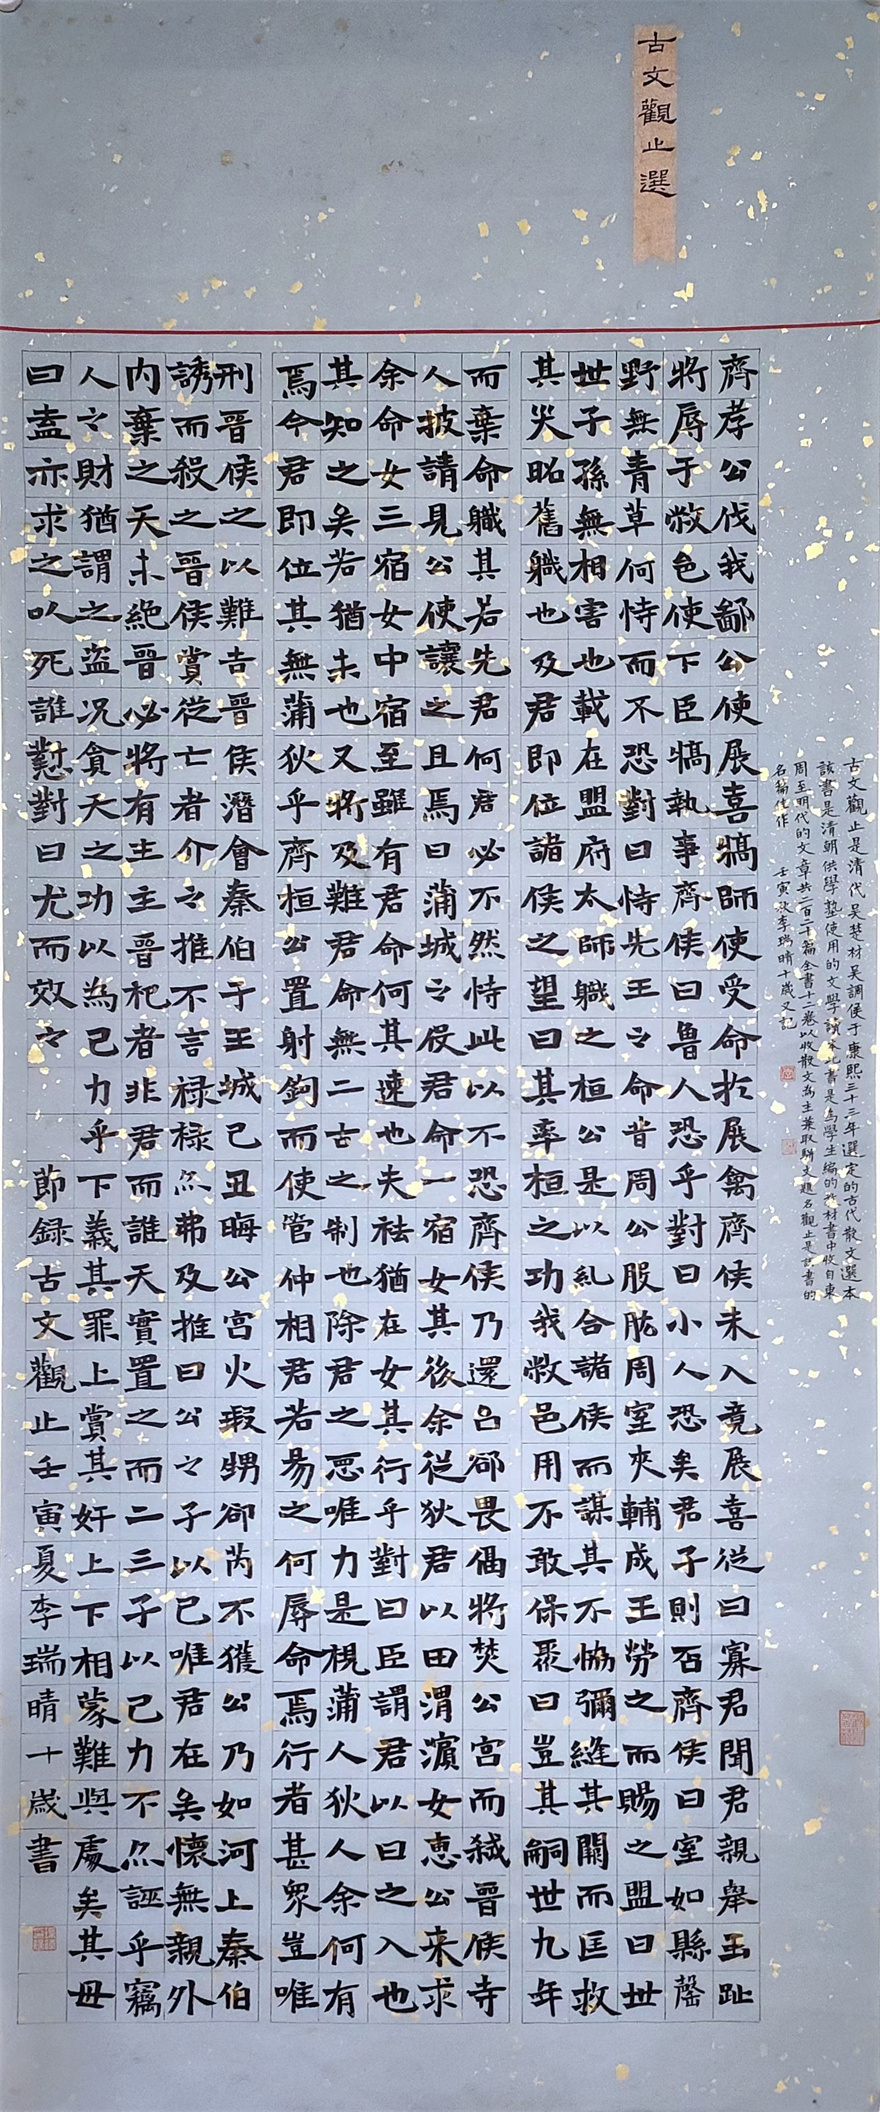 古文觀止選
古文觀止是清代吴楚材吴調侯于康熙三十三年選定的古代散文選本
該書是清朝供學塾使用的文學讀本此書是為學生編的教材書中收自東
周至明代的文章共二百二十篇全書十二卷以收散文為主兼取駢文題名觀止是該書的
名篇佳作 壬寅秋李瑞晴十歲又記
齊孝公伐我鄙公使展喜犒師使受命於展禽齊侯未入竟展喜從曰寡君聞君親舉玉趾
將辱于敝邑使下臣犒執事齊侯曰魯人恐乎對曰小人恐矣君子則否齊侯曰室如縣罄
野無青草何恃而不恐對曰恃先王之命昔周公股肱周室夾輔成王勞之而賜之盟曰世
世子孫無相害也載在盟府太師職之桓公是以糺合諸侯而謀其不恊彌縫其闕而匡救
其災昭舊職也及君即位諸侯之望曰其率桓之功我敝邑用不敢保聚曰豈其嗣世九年
而棄命職其若先君何君必不然恃此以不恐齊侯乃還呂郤畏偪將焚公宮而弒晉侯寺
人披請見公使讓之且焉曰蒲城之役君命一宿女其後余從狄君以田渭濱女惠公來求
余命女三宿女中宿至雖有君命何其速也夫袪猶在女其行乎對曰臣謂君以曰之入也
其知之矣若猶未也又將及難君命無二古之制也除君之惡唯力是視蒲人狄人余何有
焉今君即位其無蒲狄乎齊桓公置射鉤而使管仲相君若易之何辱命焉行者甚眾豈唯
刑晉侯之以難告晉侯潛會秦伯于王城己丑晦公宮火瑕甥郤芮不獲公乃如河上秦伯
誘而殺之晉侯賞從亡者介之推不言祿祿亦弗及推曰公之子以巳唯君在矣懷無親外
內棄之天未絕晉必將有主主晉祀者非君而誰天實置之而二三子以己力不亦誣乎竊
人之財猶謂之盜况貪天之功以為己力乎下義其罪上賞其奸上下相蒙難與處矣其母
曰盍亦求之以死誰懟對曰尤而效之 節録古文觀止壬寅夏李瑞晴十歲書